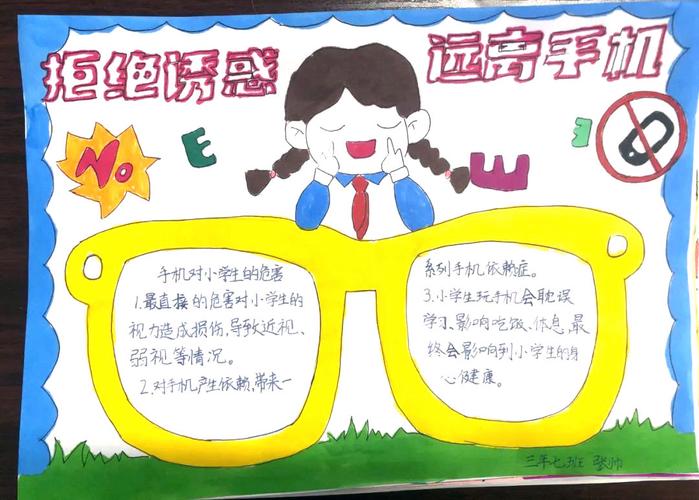 拒绝诱惑
远离手机
No
E
E
E
手机对小学生的危害
1.最直接的危害对小学生的
视力造成损伤,导致近视、
弱视等情况。
2.对手机产生依赖,带来一
系列手机依赖症。
3.小学生玩手机会耽误
学习、影响吃饭、休息,最
终会影响到小学生的身
心健康。
三年七班 张帅